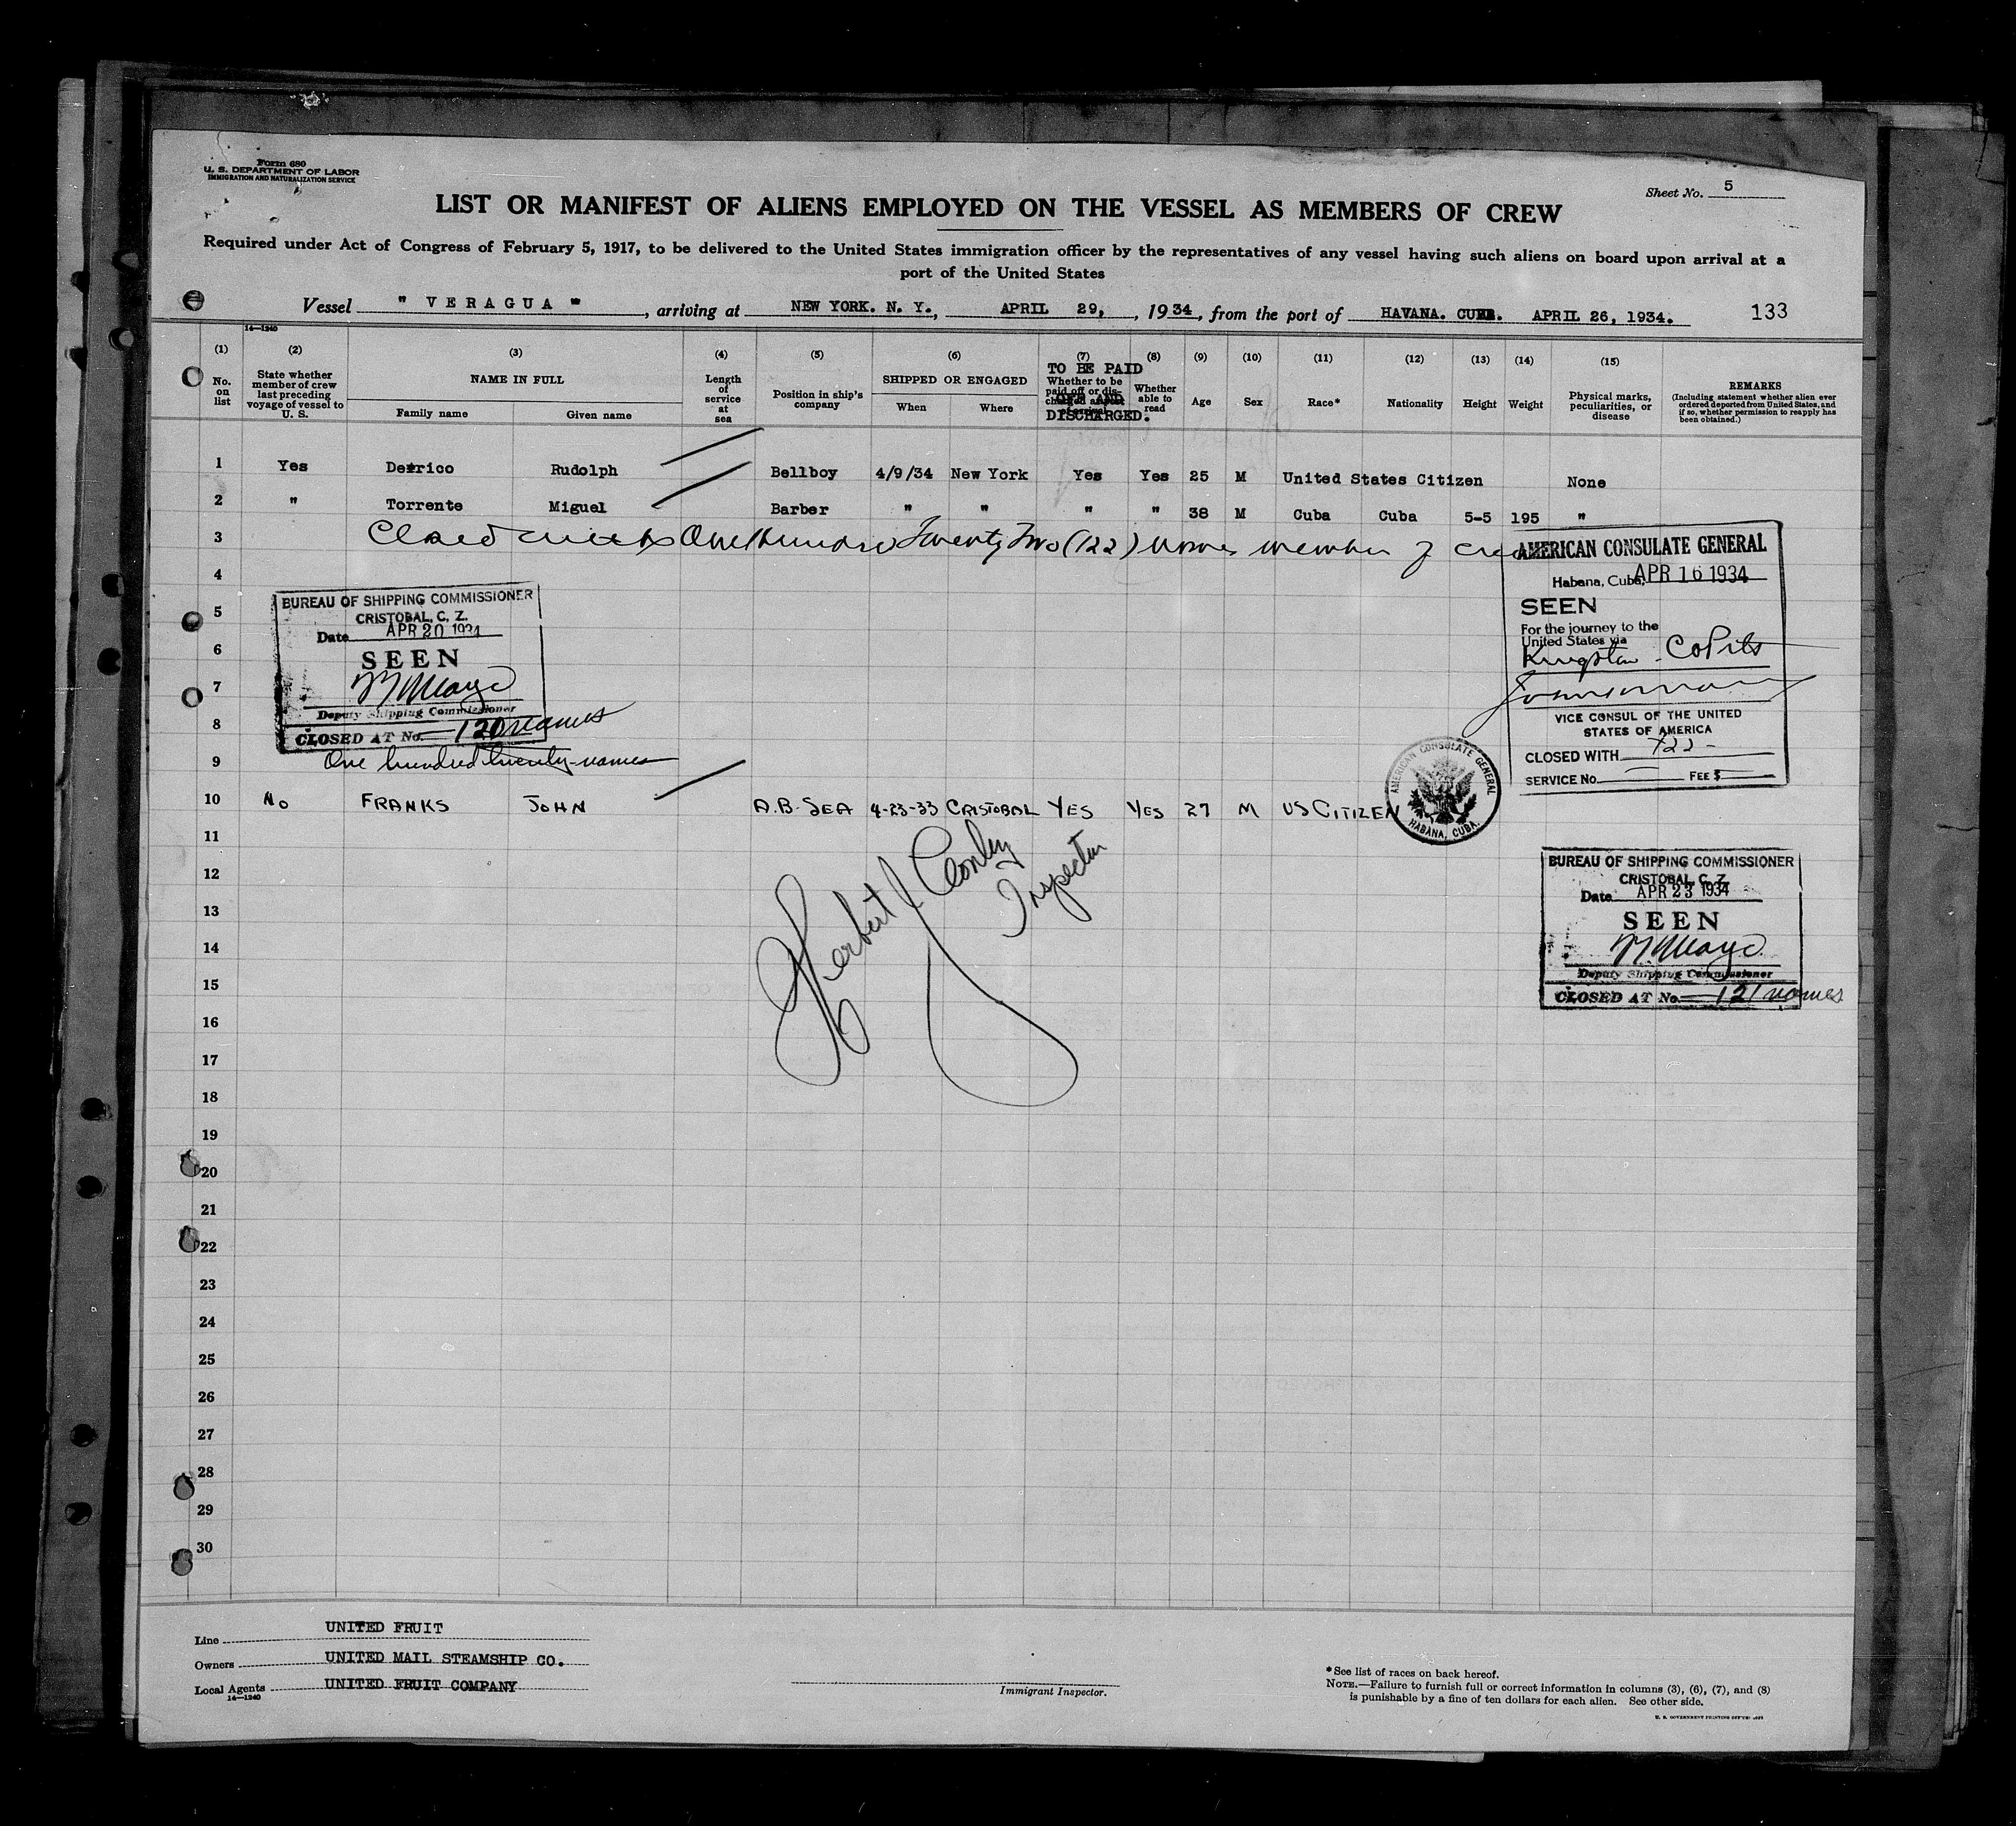 Form 680
U. S. DEPARTMENT OF LABOR
IMMIGRATION AND NATURALIZATION SERVICE
Sheet No. 5
LIST OR MANIFEST OF ALIENS EMPLOYED ON THE VESSEL AS MEMBERS OF CREW
Required under Act of Congress of February 5, 1917, to be delivered to the United States immigration officer by the representatives of any vessel having such aliens on board upon arrival at a
port of the United States
Vessel " VERAGUA " , arriving at NEW YORK. N. Y., APRIL 29, , 1934, from the port of HAVANA. CUBA. APRIL 26, 1934. 133
14—1240
(1) (2) (3) (4) (5) (6) (7) (8) (9) (10) (11) (12) (13) (14) (15)
TO BE PAID OFF AND DISCHARGED.
No. on list
State whether member of crew last preceding voyage of vessel to U. S.
NAME IN FULL
Family name
Given name
Length of service at sea
Position in ship's company
SHIPPED OR ENGAGED
When
Where
Whether to be paid off or discharged at port of arrival
Whether able to read
Age
Sex
Race*
Nationality
Height
Weight
Physical marks, peculiarities, or disease
REMARKS
(Including statement whether alien ever ordered deported from United States, and if so, whether permission to reapply has been obtained.)
1 Yes Derrico Rudolph Bellboy 4/9/34 New York Yes Yes 25 M United States Citizen None
2 " Torrente Miguel Barber " " " " 38 M Cuba Cuba 5-5 195 "
3 Closed with One Hundred Twenty Two (122) names member of crew
4
5
6
7
8
9
AMERICAN CONSULATE GENERAL
Habana, Cuba, APR 16 1934
SEEN
For the journey to the
United States via
Kingston
VICE CONSUL OF THE UNITED
STATES OF AMERICA
CLOSED WITH 122
SERVICE No. FEE $
AMERICAN CONSULATE GENERAL
HABANA, CUBA.
BUREAU OF SHIPPING COMMISSIONER
CRISTOBAL, C. Z.
Date APR 20 1934
SEEN
Deputy Shipping Commissioner
CLOSED AT No. 120 names
One hundred twenty names
10 No FRANKS JOHN A.B. SEA 4-23-33 CRISTOBAL YES YES 27 M US CITIZEN
11
12
13
14
15
16
17
18
19
20
21
22
23
24
25
26
27
28
29
30
Herbert J Conley
Inspector
BUREAU OF SHIPPING COMMISSIONER
CRISTOBAL, C. Z.
Date APR 23 1934
SEEN
Deputy Shipping Commissioner
CLOSED AT No. 121 names
Line UNITED FRUIT
Owners UNITED MAIL STEAMSHIP CO.
Local Agents UNITED FRUIT COMPANY
14—1240
Immigrant Inspector.
*See list of races on back hereof.
NOTE.—Failure to furnish full or correct information in columns (3), (6), (7), and (8)
is punishable by a fine of ten dollars for each alien. See other side.